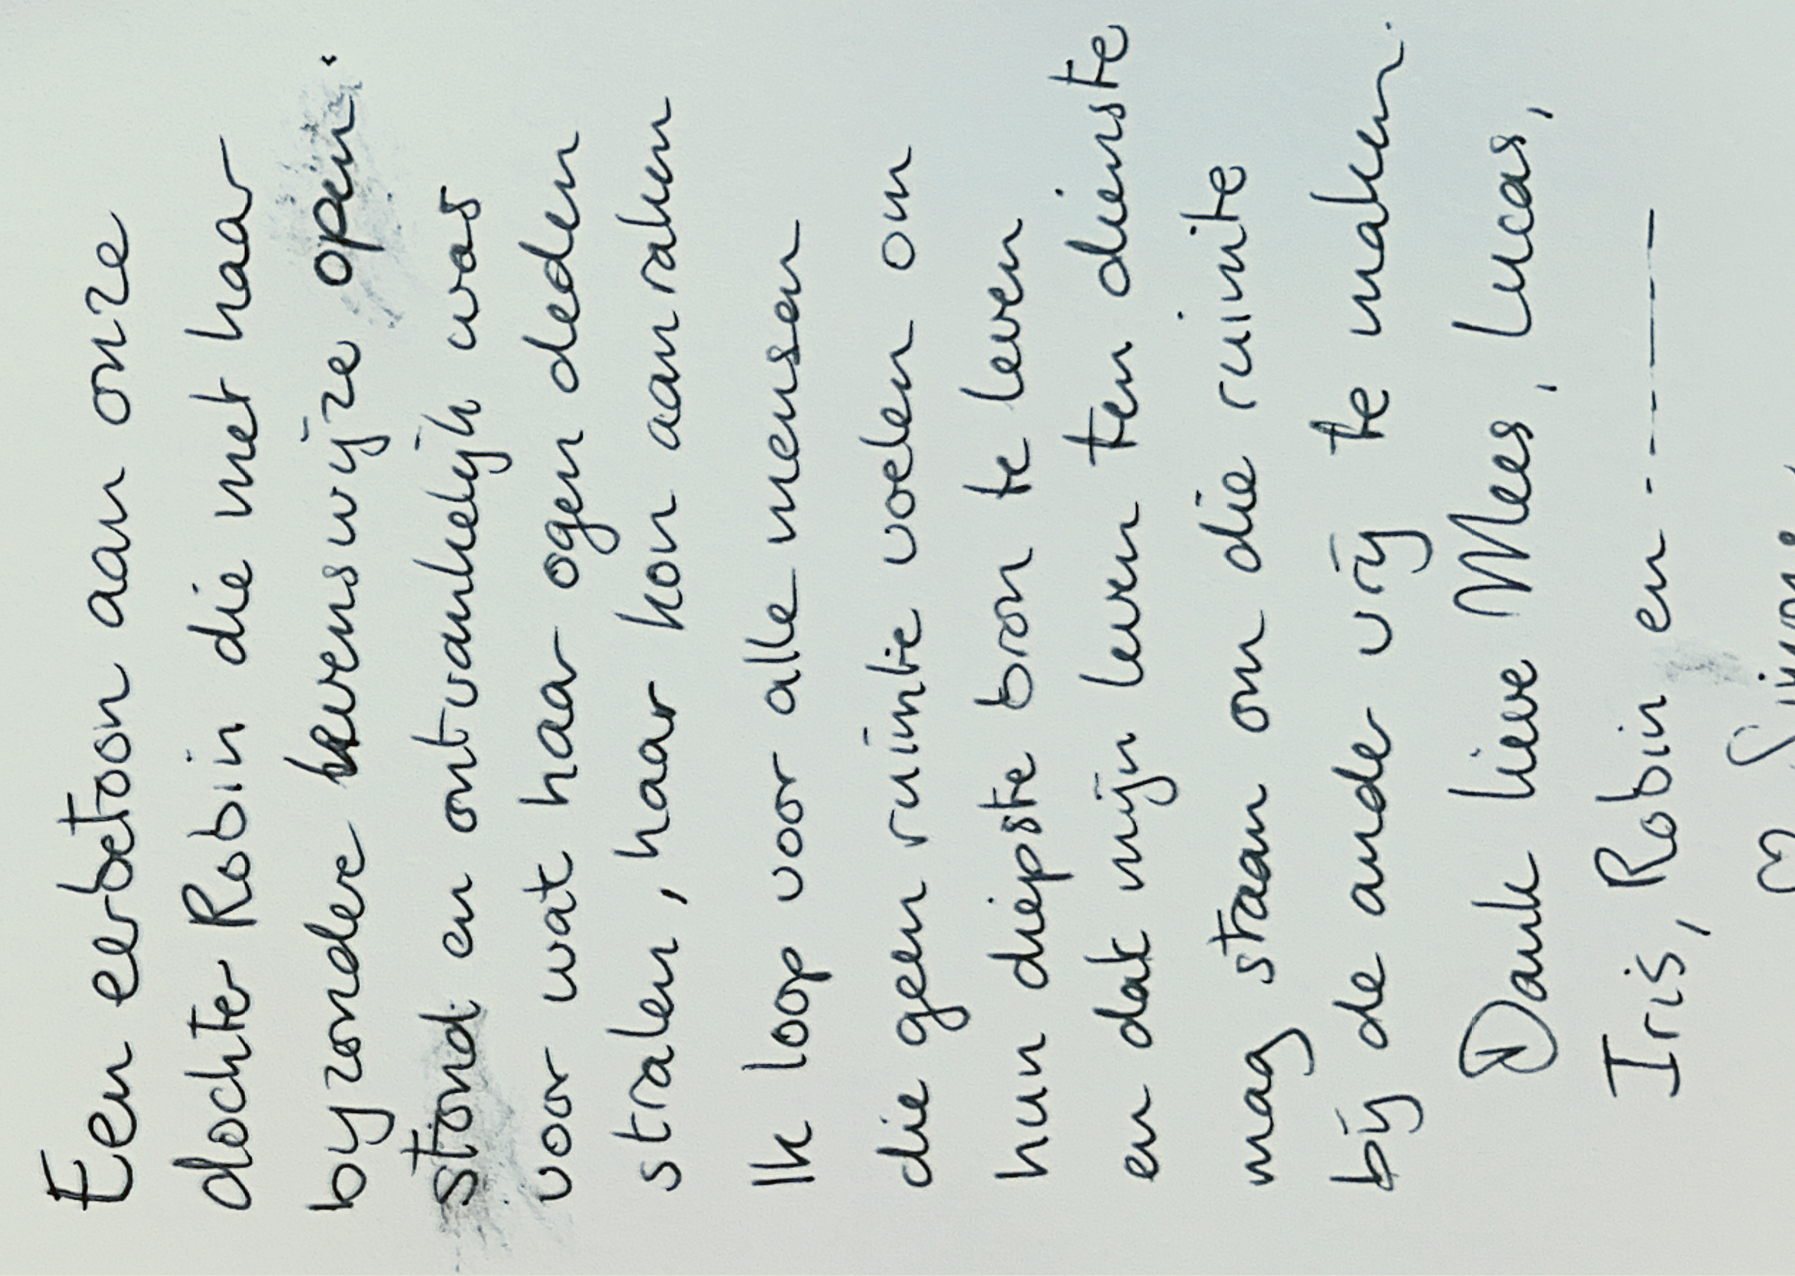 Een eerbetoon aan onze
dochter Robin die met haar
byzondere levenswijze open
stond en ontvankelijk was
voor wat haar ogen deden
stralen, haar kon aanraken
Ik loop voor alle mensen
die geen ruimte voelen om
hun diepste bron te leven
en dat mijn leven ten dienste
mag staan om die ruimte
bij de ander vrij te maken.
Dank lieve Mees, Lucas,
Iris, Robin en -----
♡ Simone